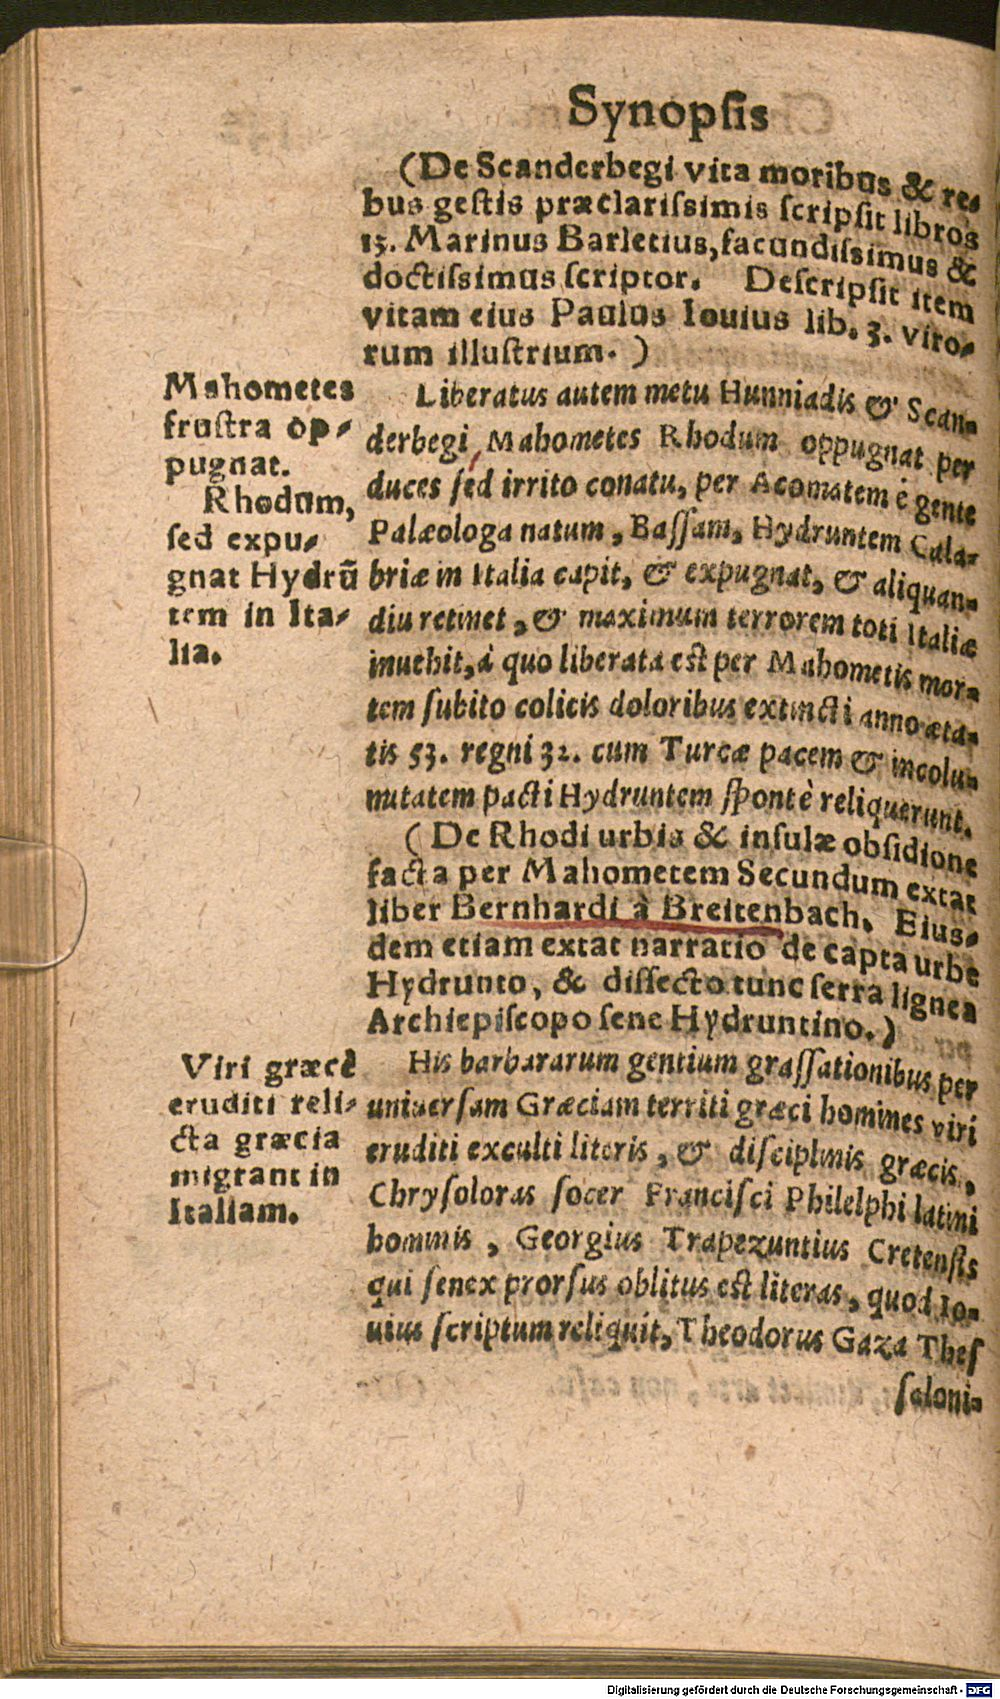 Synopſis
(De Scanderbegi vita moribus & re-
bus geſtis præclariſsimis ſcripſit libros
15. Marinus Barletius, facundiſsimus &
doctiſsimus ſcriptor. Deſcripſit item
vitam eius Paulus Iouius lib. 3. viro-
rum illuſtrium. )
Mahometes
fruſtra op-
pugnat.
Rhodum,
ſed expu-
gnat Hydrũ
tem in Ita-
lia.
Liberatus autem metu Hunniadis & Scan-
derbegi, Mahometes Rhodum oppugnat per
duces ſed irrito conatu, per Acomatem è gente
Palæologa natum, Baſſam, Hydruntem Cala-
briæ in Italia capit, & expugnat, & aliquan-
diu retinet, & maximum terrorem toti Italiæ
inuehit, à quo liberata eſt per Mahometis mor-
tem ſubito colicis doloribus extincti anno æta-
tis 53. regni 32. cum Turcæ pacem & incolu-
mitatem pacti Hydruntem ſpontè reliquerunt.
(De Rhodi urbis & inſulæ obſidione
facta per Mahometem Secundum extat
liber Bernhardi à Breitenbach. Eius-
dem etiam extat narratio de capta urbe
Hydrunto, & diſſecto tunc ſerra lignea
Archiepiſcopo ſene Hydruntino.)
Viri græcè
eruditi reli-
cta græcia
migrant in
Italiam.
His barbararum gentium graſſationibus per
uniuerſam Græciam territi græci homines viri
eruditi exculti literis, & diſciplinis græcis,
Chryſoloras ſocer Franciſci Philelphi latini
hominis, Georgius Trapezuntius Cretenſis
qui ſenex prorſus oblitus eſt literas, quod Io-
uius ſcriptum reliquit, Theodorus Gaza Theſ
ſaloni-
Digitalisierung gefördert durch die Deutsche Forschungsgemeinschaft - DFG